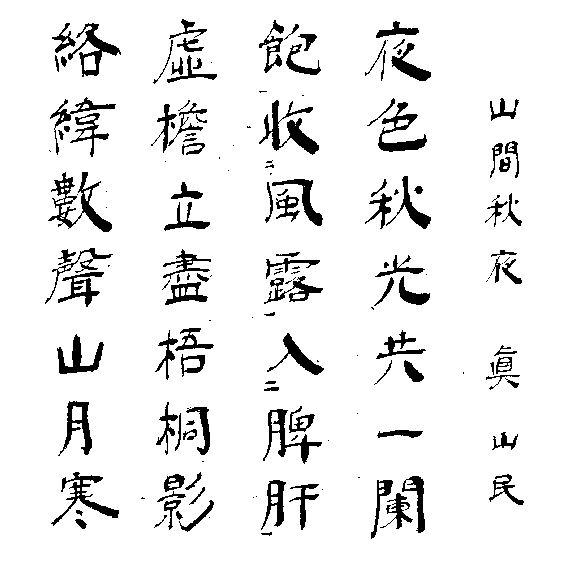 山間秋夜 眞山民
夜色秋光共一闌
飽收風露入脾肝
虛檐立盡梧桐影
絡緯數聲山月寒